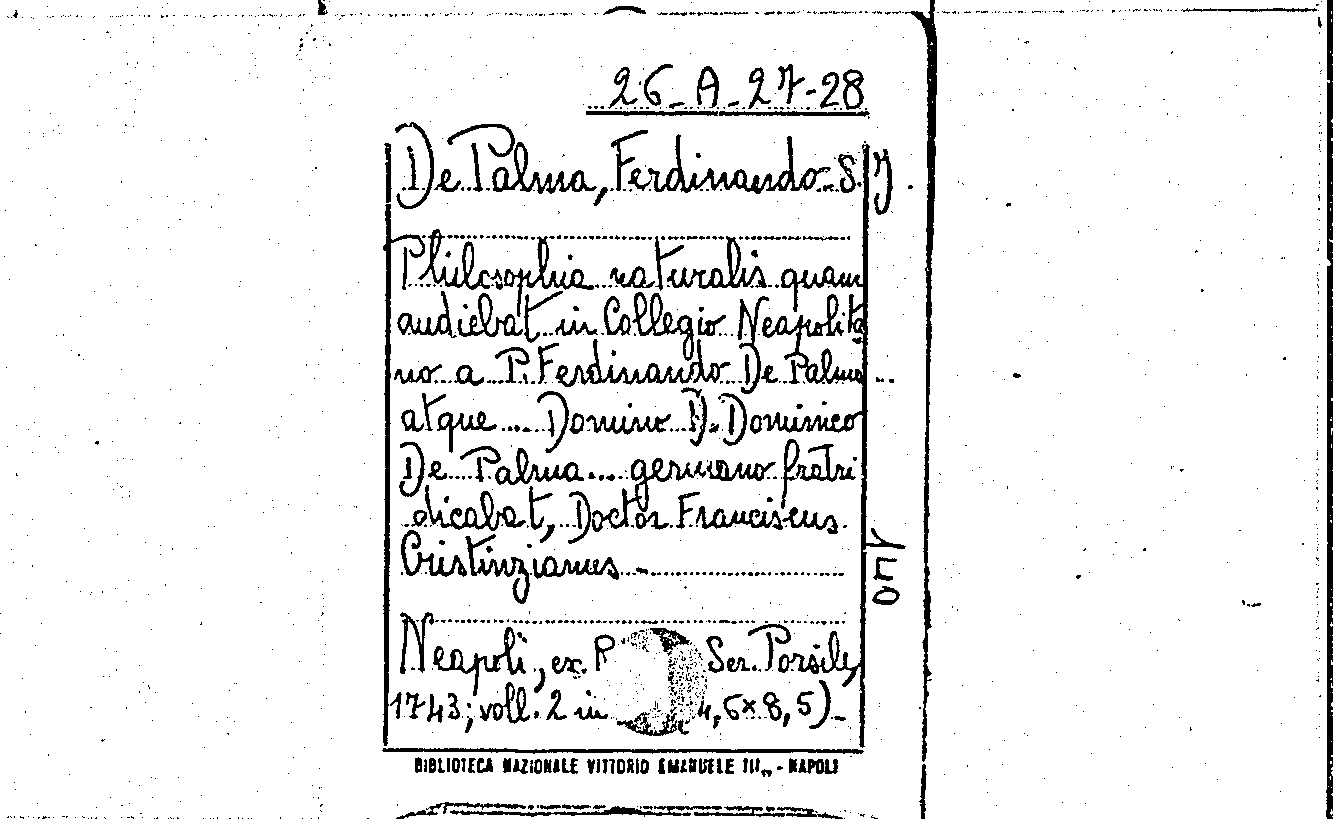 26-A-27-28
De Palma, Ferdinando S.J.
Philosophia naturalis quam
audiebat in Collegio Neapolita
no a P. Ferdinando De Palma ..
atque .... Domino D. Dominico
De Palma... germano fratri
dicabat, Doctor Franciscus
Cristinzianus -
Neapoli, ex. Ser. Porsile,
1743; voll. 2 in 4,6x8,5)-
BIBLIOTECA NAZIONALE VITTORIO EMANUELE III„ - NAPOLI